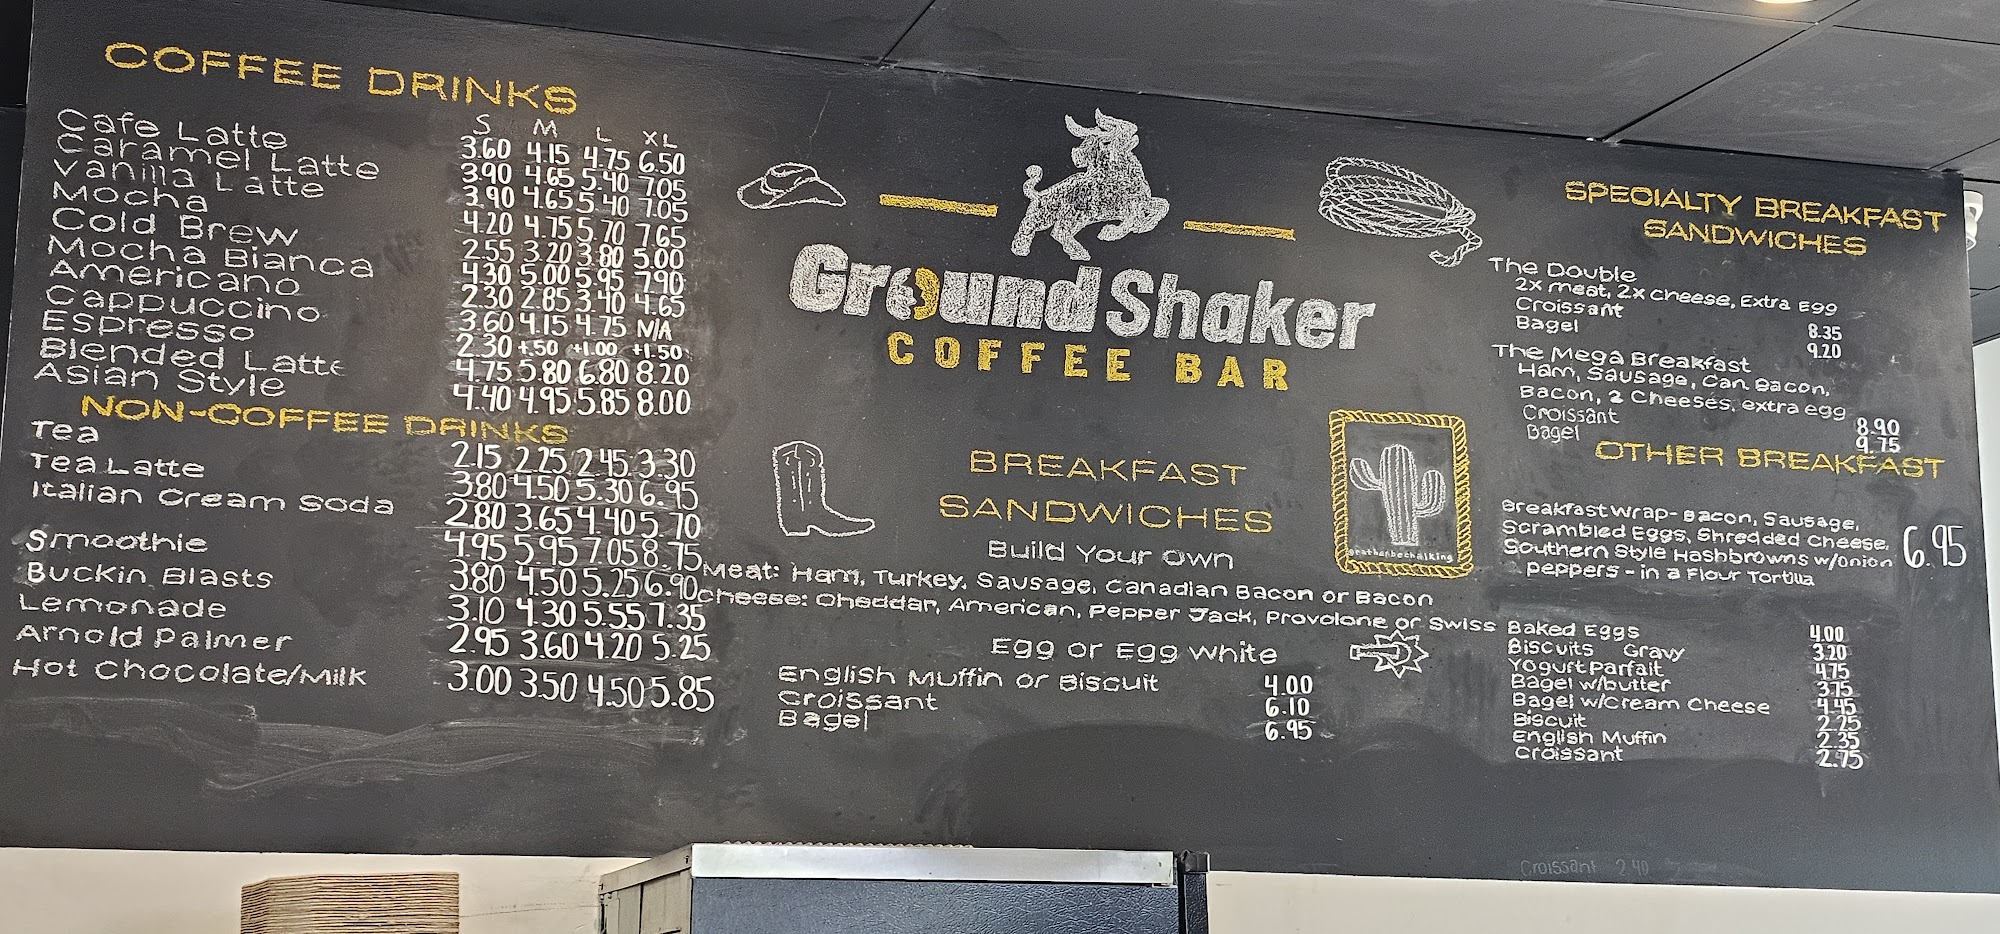 COFFEE DRINKS
S M L XL
Cafe Latte 3.60 4.15 4.75 6.50
Caramel Latte 3.90 4.65 5.40 7.05
Vanilla Latte 3.90 4.65 5.40 7.05
Mocha 4.20 4.75 5.70 7.65
Cold Brew 2.55 3.20 3.80 5.00
Mocha Bianca 4.30 5.00 5.95 7.90
Americano 2.30 2.85 3.40 4.65
Cappuccino 3.60 4.15 4.75 N/A
Espresso 2.30 +.50 +1.00 +1.50
Blended Latte 4.75 5.80 6.80 8.20
Asian Style 4.40 4.95 5.85 8.00
NON-COFFEE DRINKS
Tea 2.15 2.25 2.45 3.30
Tea Latte 3.80 4.50 5.30 6.95
Italian Cream Soda 2.80 3.65 4.40 5.70
Smoothie 4.95 5.95 7.05 8.75
Buckin Blasts 3.80 4.50 5.25 6.90
Lemonade 3.10 4.30 5.55 7.35
Arnold Palmer 2.95 3.60 4.20 5.25
Hot Chocolate/Milk 3.00 3.50 4.50 5.85
Ground Shaker
COFFEE BAR
BREAKFAST
SANDWICHES
Build Your Own
Meat: Ham, Turkey, Sausage, Canadian Bacon or Bacon
Cheese: Cheddar, American, Pepper Jack, Provolone or Swiss
Egg or Egg White
English Muffin or Biscuit 4.00
Croissant 6.10
Bagel 6.95
@ratherbechalking
SPECIALTY BREAKFAST
SANDWICHES
The Double
2x meat, 2x cheese, Extra Egg
Croissant 8.35
Bagel 9.20
The Mega Breakfast
Ham, Sausage, Can. Bacon,
Bacon, 2 Cheeses, extra egg
Croissant 8.90
Bagel 9.75
OTHER BREAKFAST
Breakfast Wrap- Bacon, Sausage,
Scrambled Eggs, Shredded Cheese, 6.95
Southern Style Hashbrowns w/onion
peppers - in a Flour Tortilla
Baked Eggs 4.00
Biscuits Gravy 3.20
Yogurt Parfait 4.75
Bagel w/butter 3.75
Bagel w/Cream Cheese 4.45
Biscuit 2.25
English Muffin 2.35
Croissant 2.75
Croissant 2.40